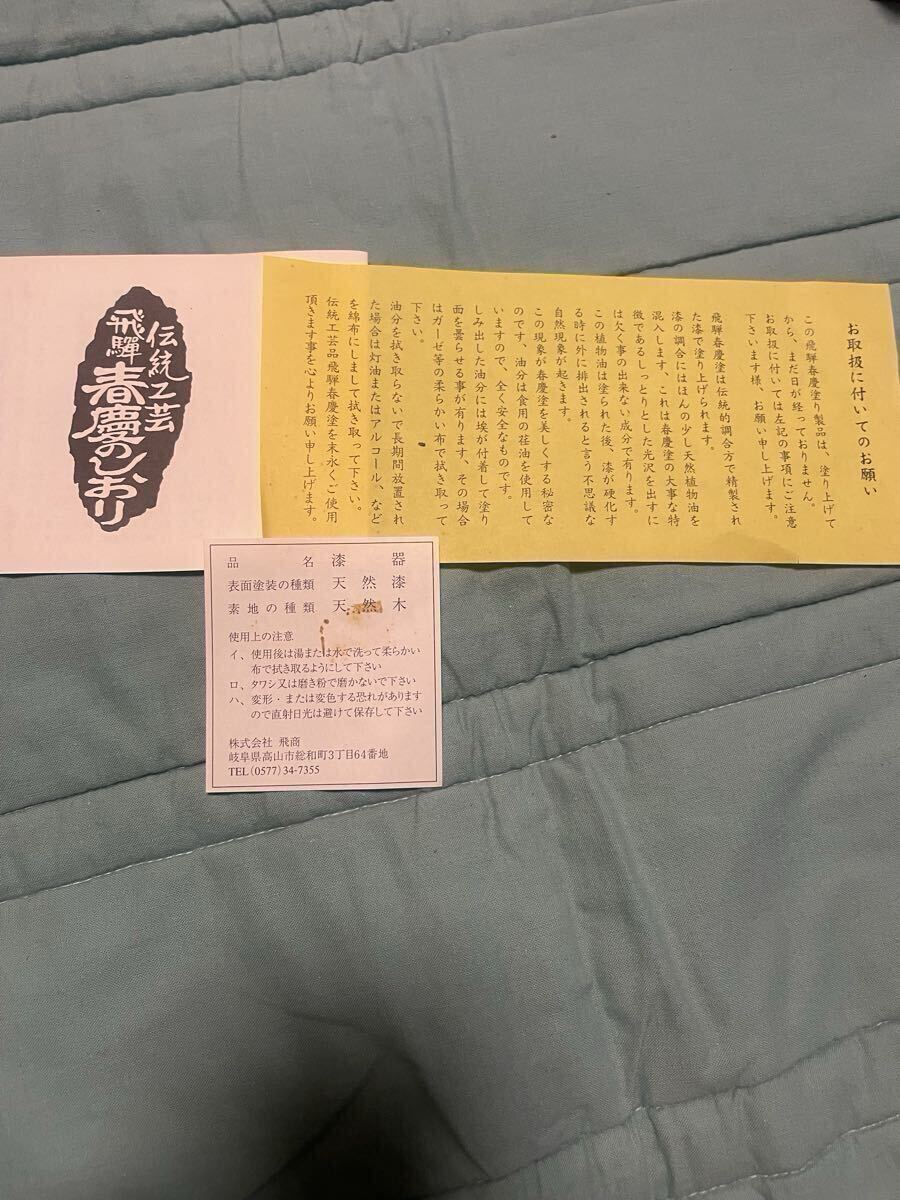 伝統工芸
飛騨
春慶のしおり
お取扱に付いてのお願い
この飛騨春慶塗り製品は、塗り上げて
から、まだ日が経っておりません。
お取扱に付いては左記の事項にご注意
下さいます様、お願い申し上げます。
飛騨春慶塗は伝統的調合方で精製され
た漆で塗り上げられます。
漆の調合にはほんの少し天然植物油を
混入します、これは春慶塗の大事な特
徴であるしっとりとした光沢を出すに
は欠く事の出来ない成分で有ります。
この植物油は塗られた後、漆が硬化す
る時に外に排出されると言う不思議な
自然現象が起きます。
この現象が春慶塗を美しくする秘密な
のです、油分は食用の荏油を使用して
いますので、全く安全なものです。
しみ出した油分には埃が付着して塗り
面を曇らせる事が有ります、その場合
はガーゼ等の柔らかい布で拭き取って
下さい。
油分を拭き取らないで長期間放置され
た場合は灯油またはアルコール、など
を綿布にしまして拭き取って下さい。
伝統工芸品飛騨春慶塗を末永くご使用
頂きます事を心よりお願い申し上げます。
品名 漆器
表面塗装の種類 天然漆
素地の種類 天然木
使用上の注意
イ、使用後は湯または水で洗って柔らかい
布で拭き取るようにして下さい
ロ、タワシ又は磨き粉で磨かないで下さい
ハ、変形・または変色する恐れがあります
ので直射日光は避けて保存して下さい
株式会社 飛商
岐阜県高山市総和町3丁目64番地
TEL(0577)34-7355